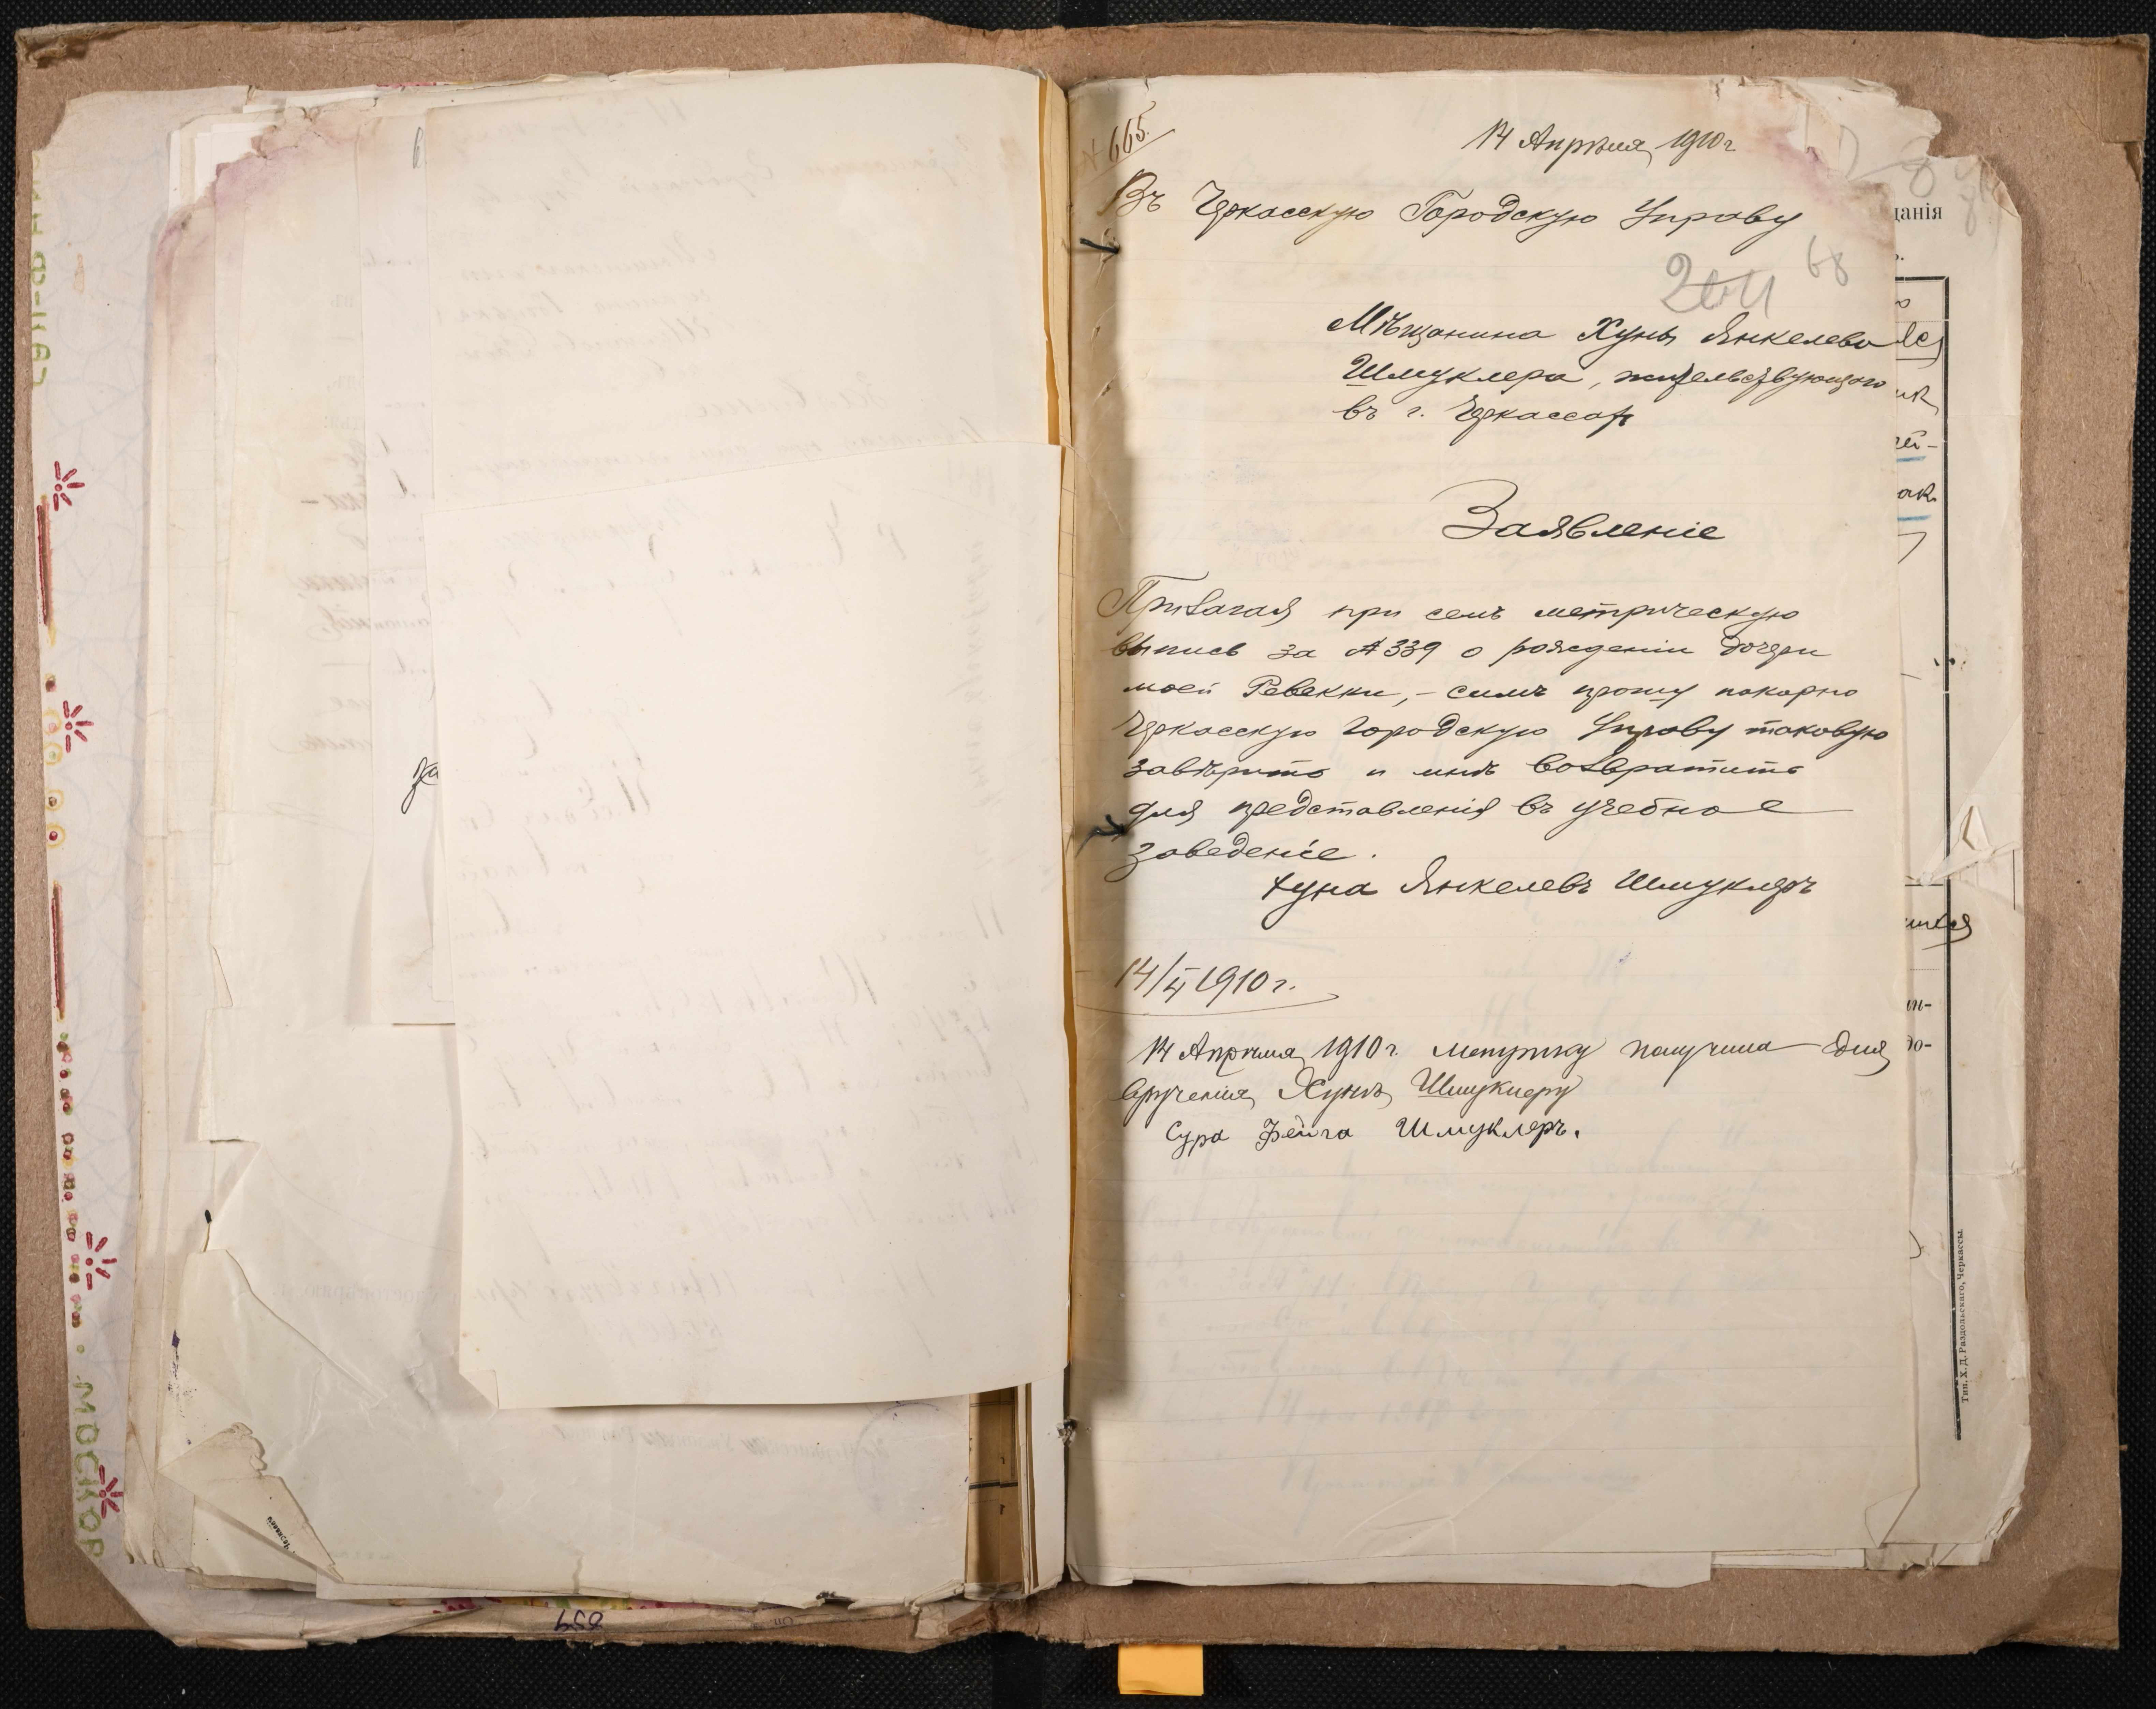 № 665.
14 Апрѣля 1910 г
Въ Черкасскую Городскую Управу
68
204
Мѣщанина Хуны Янкелева
Шмуклера, жительствующаго
въ г. Черкассах
Заявленіе
Прилагая при семъ метрическую
выпись за № 339 о рожденіи дочери
моей Ревекки, – симъ прошу покорно
Черкасскую Городскую Управу таковую
завѣрить и мнѣ возвратить
для представленія въ учебное
заведеніе.
Хуна Янкелевъ Шмуклеръ
14/IV 1910 г.
14 Апрѣля 1910 г. метрику получила для
врученія Хунѣ Шмуклеру
Сура Фейга Шмуклеръ.
данія
ей-
ак
до-
Тип. Х. Д. Раздольскаго, Черкассы
за
МОСКОВ
659